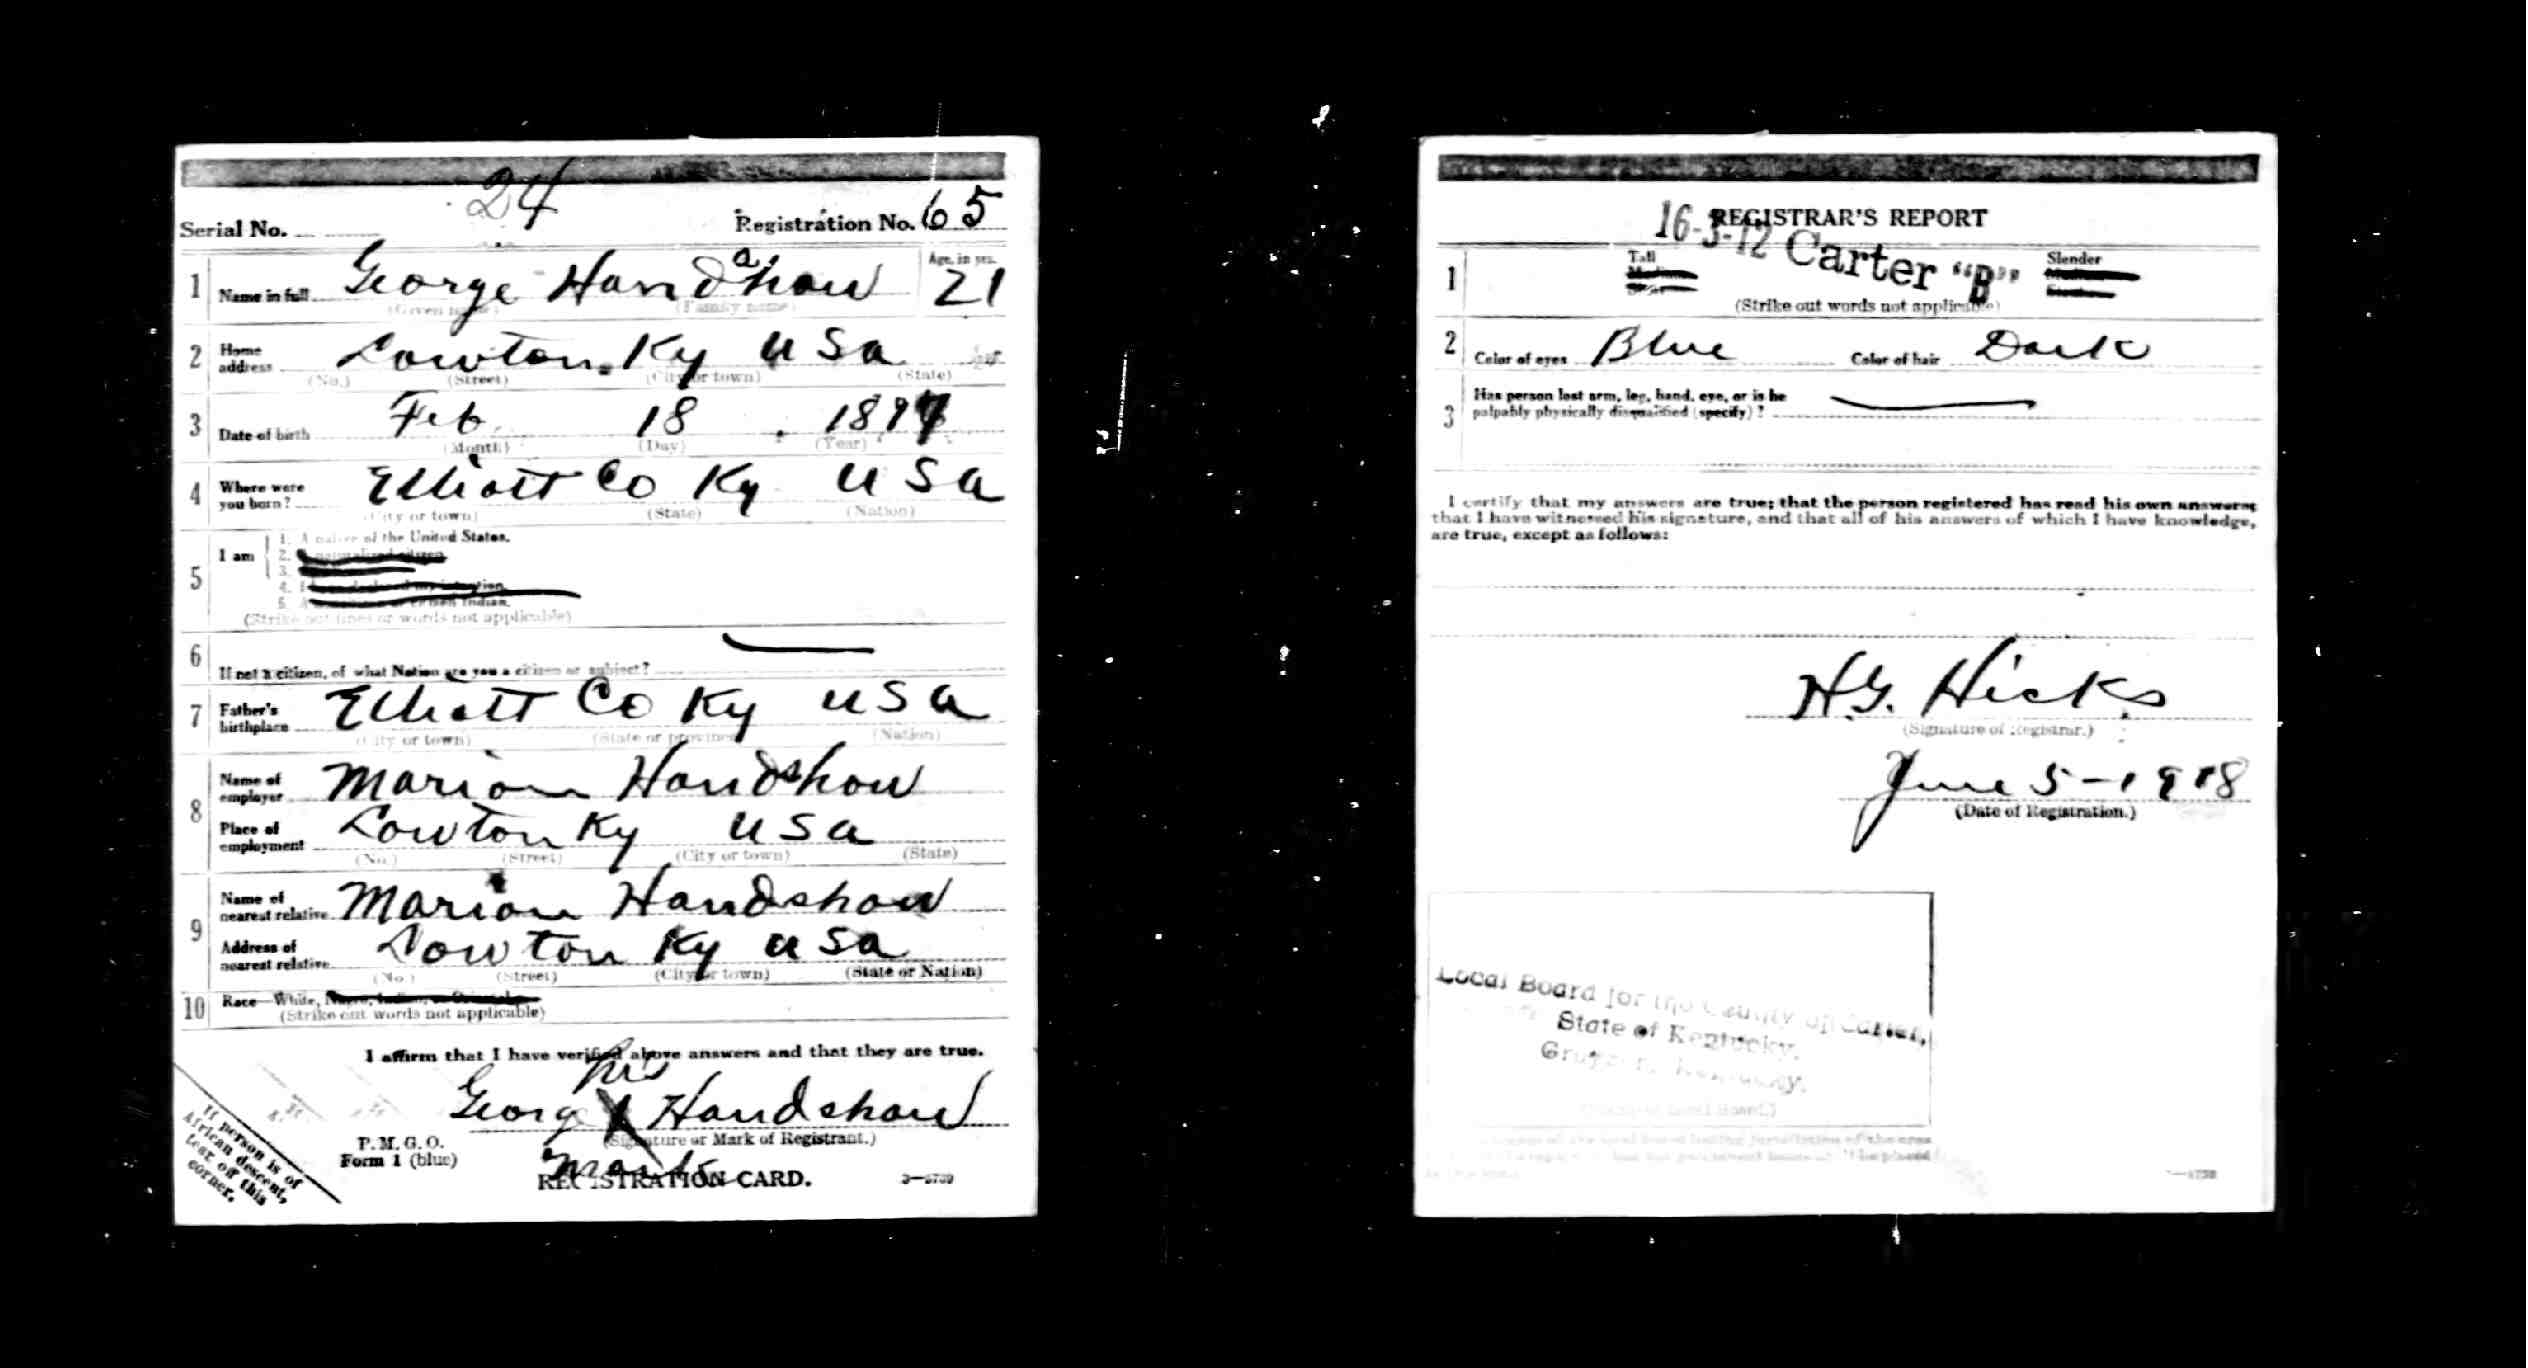 24
Serial No. Registration No. 65
1 Name in full George Handshaw Age, in yrs. 21
(Given name) (Family name)
2 Home address Lowton. Ky U S a
(No.) (Street) (City or town) (State)
3 Date of birth Feb 18 1897
(Month) (Day) (Year)
4 Where were you born? Elliott Co Ky U S a
(City or town) (State) (Nation)
5 I am
1. A native of the United States.
2. A naturalized citizen
3.
4. I have declared my intention
5. A citizen Indian.
(Strike out lines or words not applicable)
6 If not a citizen, of what Nation are you a citizen or subject?
7 Father's birthplace Elliott Co Ky U S a
(City or town) (State or province) (Nation)
8 Name of employer Marion Handshow
Place of employment Lowton Ky U S a
(No.) (Street) (City or town) (State)
9 Name of nearest relative Marion Handshow
Address of nearest relative Lowton Ky U S a
(No.) (Street) (City or town) (State or Nation)
10 Race—White, Negro, Indian, or Oriental
(Strike out words not applicable)
I affirm that I have verified above answers and that they are true.
his
George X Handshaw
(Signature or Mark of Registrant.)
mark
P. M. G. O.
Form 1 (blue)
REGISTRATION CARD.
If person is of
African descent,
tear off this
corner.
REGISTRAR'S REPORT
16-3-12 Carter "B"
1 Tall Slender
(Strike out words not applicable)
2 Color of eyes Blue Color of hair Dark
3 Has person lost arm, leg, hand, eye, or is he
palpably physically disqualified (specify)?
I certify that my answers are true; that the person registered has read his own answers;
that I have witnessed his signature, and that all of his answers of which I have knowledge,
are true, except as follows:
H. G. Hicks
(Signature of Registrar.)
June 5-1918
(Date of Registration.)
Local Board for the County of Carter,
State of Kentucky.
Grayson, Kentucky.